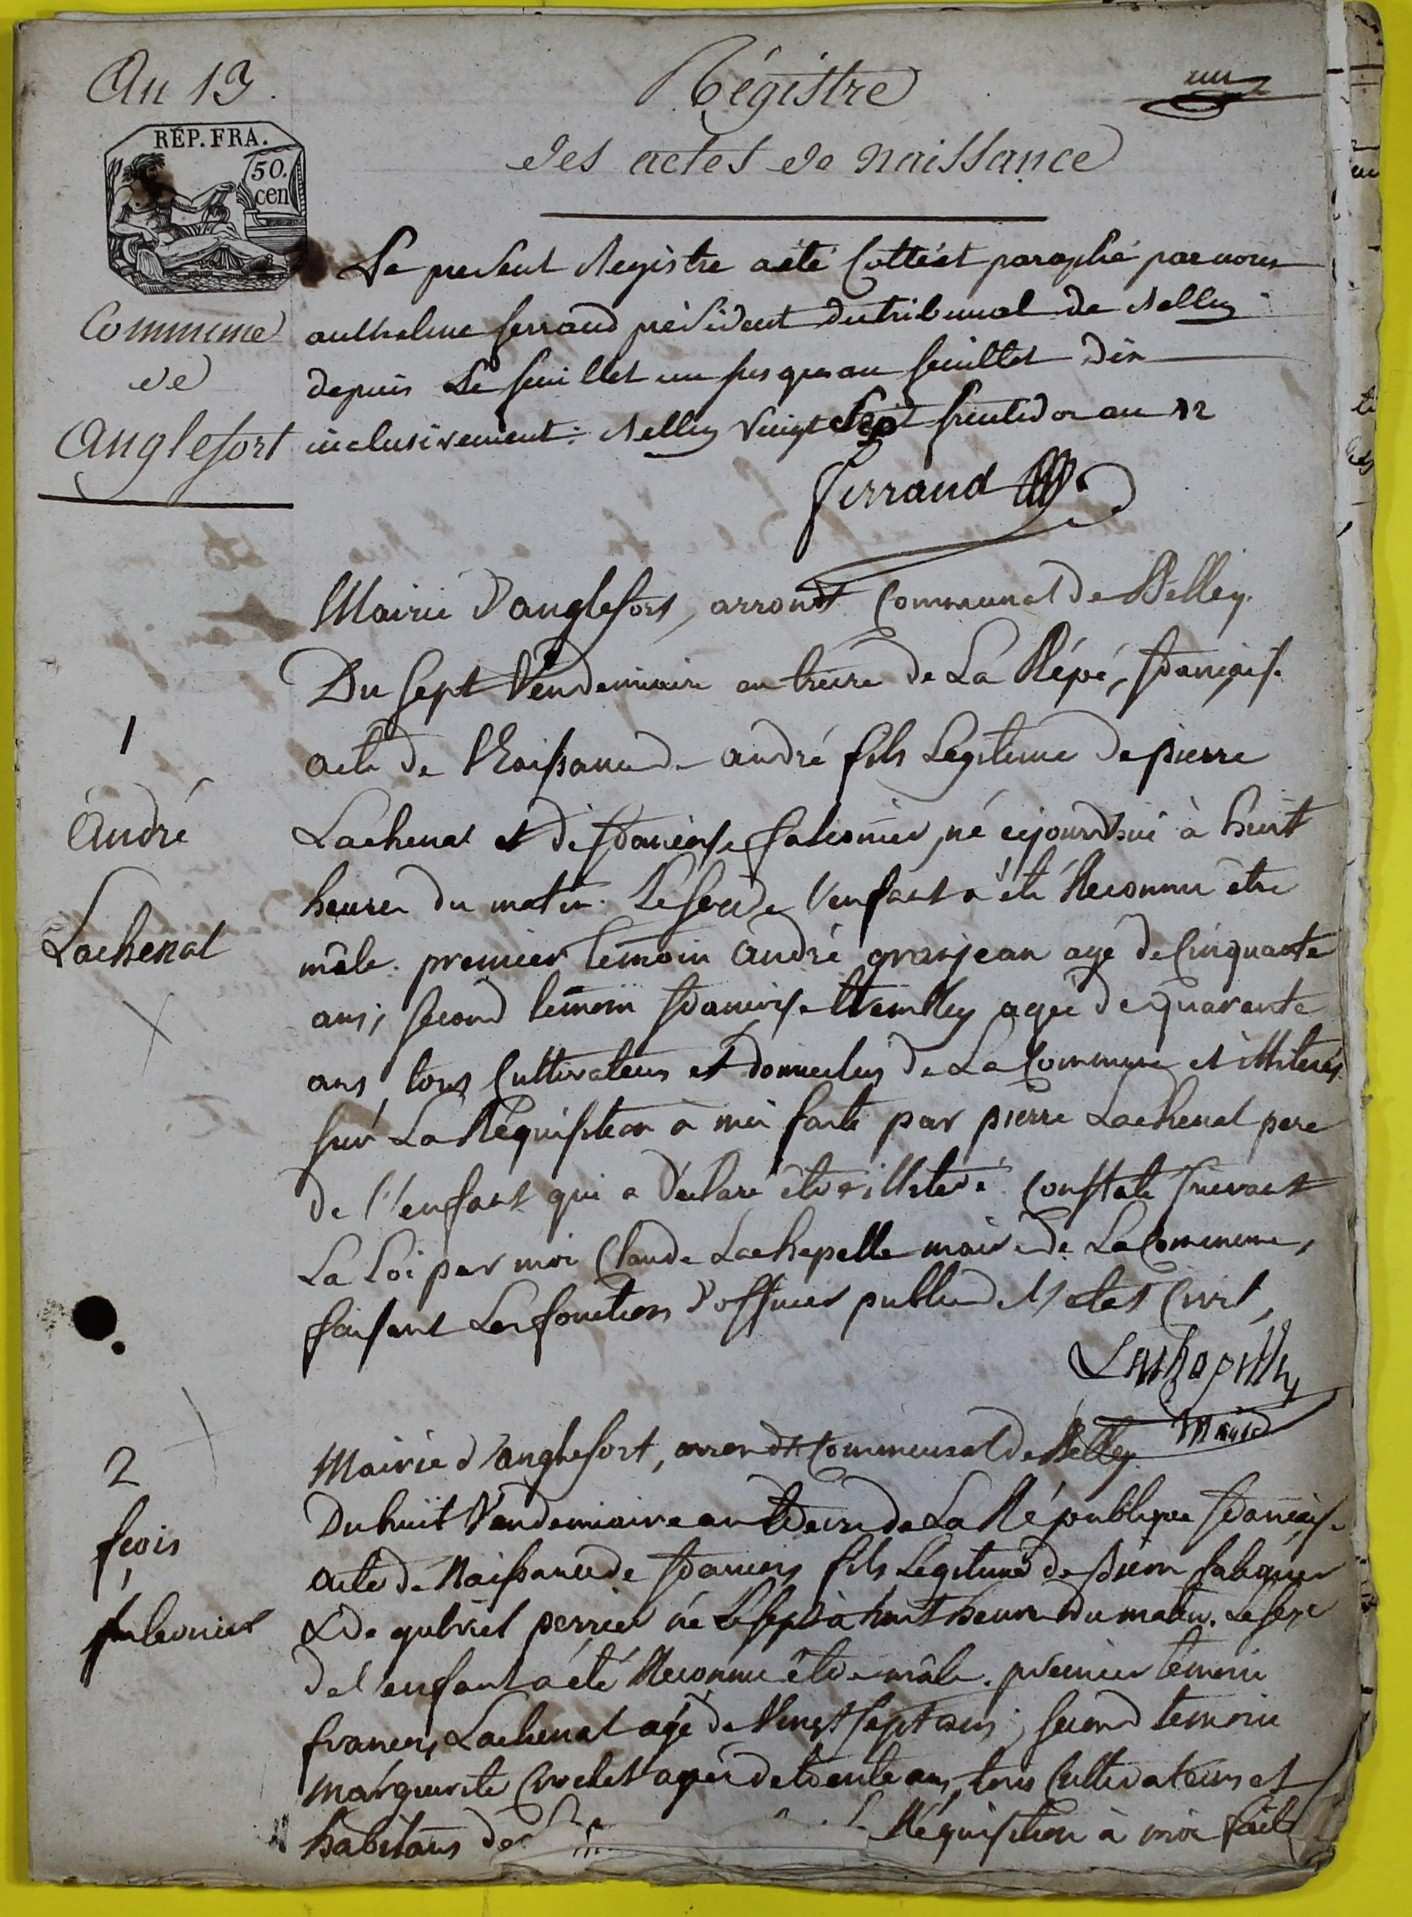 An 13.
RÉP. FRA.
50.
cen
Commune
de
Anglefort
Régistre
des actes de naissance
Le present Registre a été Cotté et paraphé par nous
anthelme ferrand président du tribunal de Belley
depuis Le feuillet un jusques au feuillet dix
inclusivement: Belley vingt Sept fructidor an 12
ferrand
Mairie d'anglefort, arrondt Communal de Belley.
Du Sept Vendemiaire an treize de La Répé, françaiſe
1
André
Lachenal
acte de Naiſsance de andré fils Legitime de pierre
Lachenal et de françoiſe falconier, né cejourd'hui à huit
heures du matin. Le sexe de l'enfant a été Reconnu être
mâle. premier temoin andré granjean agé de Cinquante
ans; second temoin françoiſe agée de quarante
ans, tous Cultivateurs et domiciliés de La Commune et illiterés
sur La Réquiſition à moi faite par pierre Lachenal pere
de l'enfant qui a déclaré être illiteré. Conſtaté suivant
La Loi par moi Claude Lachapelle maire de La Commune,
faiſant Les fonctions d'officier public de l'état Civil,
Lachapelle
Maire
2
fçois
falconier
Mairie d'anglefort, arrondt Communal de Belley
Du huit Vendemiaire an treize de La République françaiſe
acte de Naiſsance de françois fils Légitime de pierre falconier
& de gabriel perrier né Le sept à huit heures du matin. Le sexe
de l'enfant a été Reconnu être mâle. premier témoin
françois Lachenal agé de Vingt sept ans; second temoin
marguerite agée de trente ans, tous Cultivateurs et
habitans de Réquiſition à moi faite